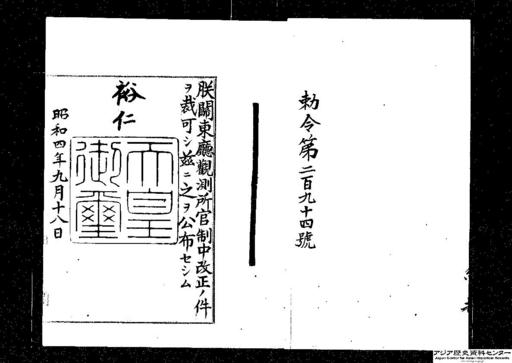 勅令第二百九十四號
朕關東廳觀測所官制中改正ノ件
ヲ裁可シ玆ニ之ヲ公布セシム
裕仁
天皇御璽
昭和四年九月十八日
アジア歴史資料センター
Japan Center for Asian Historical Records